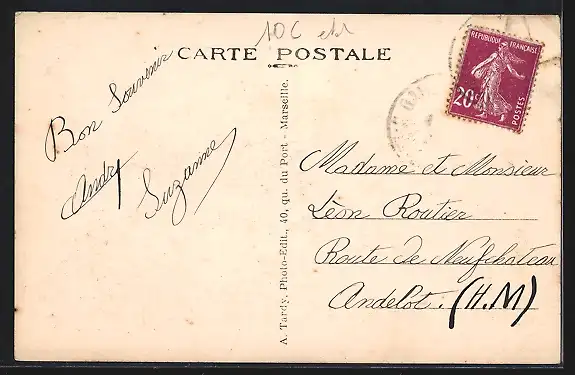 10C
CARTE POSTALE
REPUBLIQUE FRANÇAISE
20c
POSTES
Bon Souvenir
Andry
Suzanne
A. Tardy, Photo-Edit., 40, qu. du Port - Marseille.
Madame et Monsieur
Léon Routier
Route de Neufchateau
Andelot. (H.M)